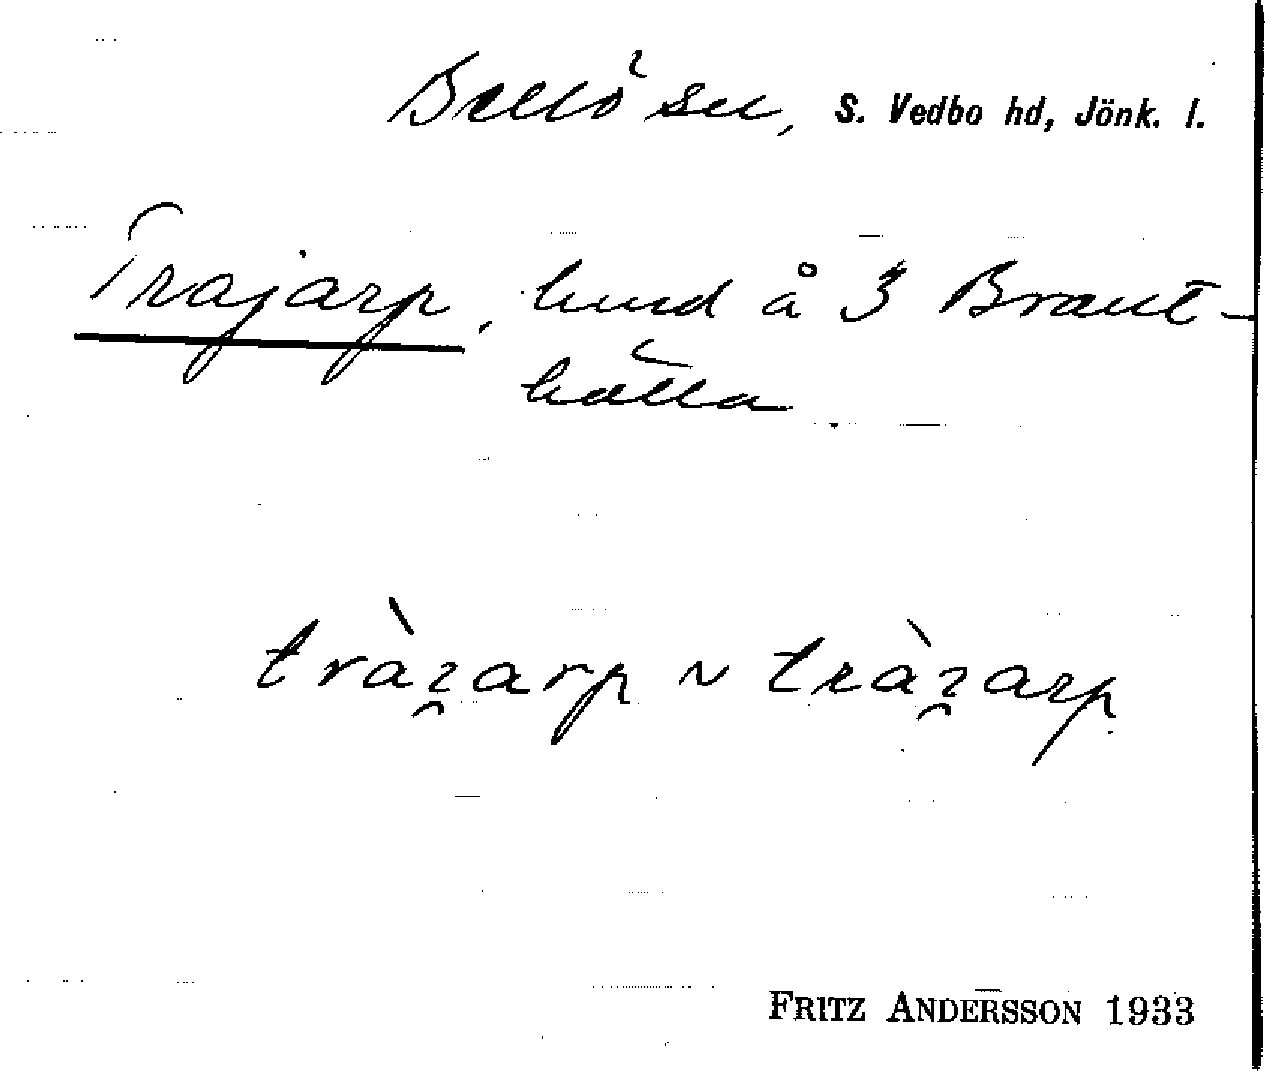 Bellö sn, S. Vedbo hd, Jönk. l.
Trajarp, lund å 3 Brant-
hälla
tràɿ̯arp ~ tràɿ̯arp
FRITZ ANDERSSON 1933